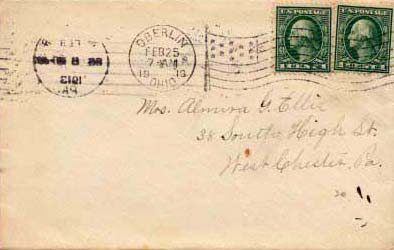 OBERLIN
FEB 25
7-AM
1913
OHIO
U.S. POSTAGE
U.S. POSTAGE
1913
PA.
Mrs. Almira G. Ellis
38 South High St.
West Chester, Pa.